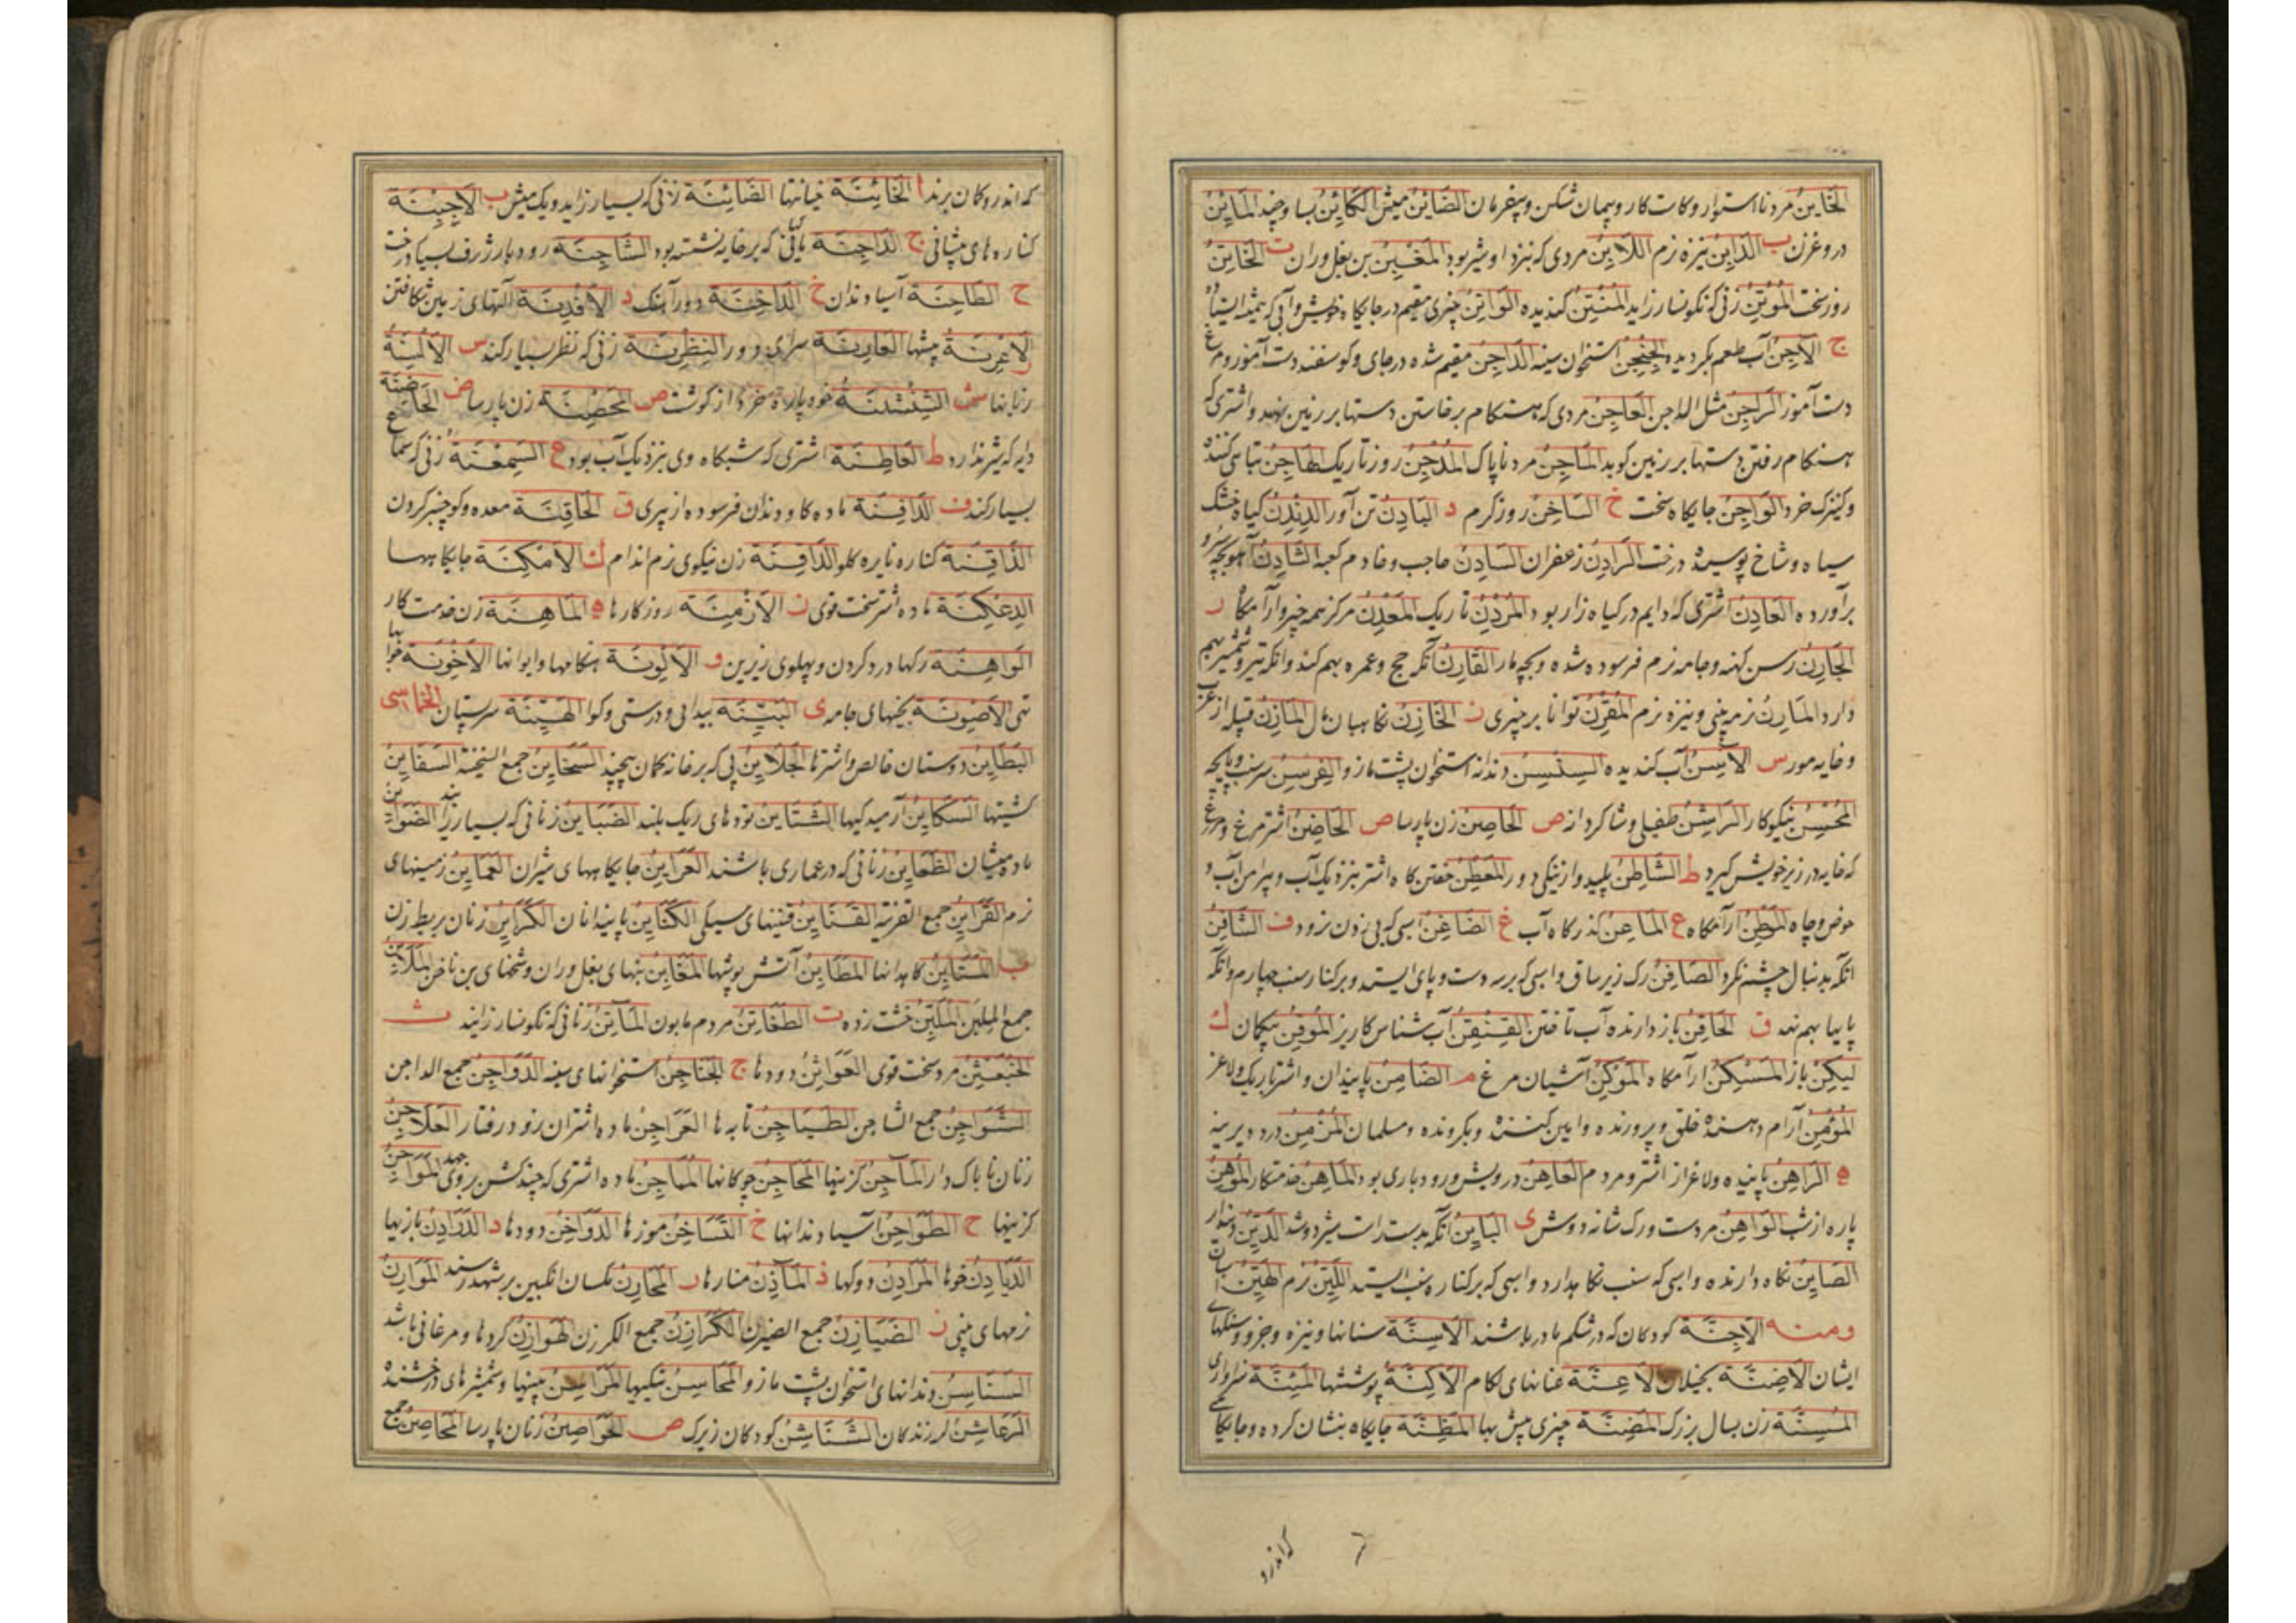 الخَاینُ مرد نا استوار و کاست کار و پیمان شکن و بیفرمان الضَایِنُ میش الکَایِنُ بسا و چند المَایِنُ
دروغزن ب الدَابِنُ نیزه نرم اللَابِنُ مردی که نزد او شیر بود المَغْبِنُ بن بغل و ران ت الخَاتِنُ
روز سخت المُوتِنُ زنی که نکونسار زاید المُنْتِنُ کندیده الوَاتِنُ چیزی مقیم در جایکاه خویش و آبی که همیشه ایستاده
ج الآجِنُ آب طعم بکردیده الجِنْجِنُ استخوان سینه الدَاجِنُ مقیم شده در جای و کوسفند دست آموز و مرغ
دست آموز الرَاجِنُ مثل الداجن العَاجِنُ مردی که هنکام برخاستن دستها بر زمین نهد و اشتری که
هنکام رفتن دستها بر زمین کوبد المَاجِنُ مرد ناپاک المُدْجِنُ روز تاریک الطَاجِنُ تباهی کننده
و کنیزک خرد الوَاجِنُ جایکاه سخت خ السَاخِنُ روز کرم د البَادِنُ تن آور الدِنْدِنُ کیاه خشک
سیاه و شاخ پوسیده درخت الرَادِنُ زعفران السَادِنُ حاجب و خادم کعبه الشَادِنُ آهو بچه سرو
برآورده العَادِنُ اشتری که دایم در کیاه زار بود المُرْدِنُ تاریک المَعْدِنُ مرکز همه چیز و آرامکاه ر
الجَارِنُ رسن کهنه و جامه نرم فرسوده شده و بچه مار القَارِنُ آنکه حج و عمره بهم کند و آنکه تیر و شمشیر بهم
دارد المَارِنُ نرمه بینی و نیزه نرم المُقْرِنُ توانا بر چیزی ز الخَازِنُ نکاهبان مال المَازِنُ قبیله از عرب
و خایه مور س الآسِنُ آب کندیده السِنْسِنُ دندانه استخوان پشت مازو الفِرْسِنُ سر سنب و پایچه
المُحْسِنُ نیکوکار الرَاشِنُ طفیلی و شاکردانه ص الحَاصِنُ زن پارسا ض الحَاضِنُ اشتر مرغ و مرغی
که خایه در زیر خویش کیرد ط الشَاطِنُ پلید و از نیکی دور المَعْطِنُ خفتن کاه اشتر نزدیک آب و پیرامن آب و
حوض و چاه المَوْطِنُ آرامکاه ع المَاعِنُ کذرکاه آب غ الضَاغِنُ اسبی که بی زدن نرود ف الشَافِنُ
آنکه بدنبال چشم نکرد الصَافِنُ رک زیر ساق و اسبی که بر سه دست و پای ایستد و بر کنار سنب چهارم و آنکه
پایها بهم نهد ق الحَاقِنُ باز دارنده آب تافتن القِنْقِنُ آب شناس کاریز المُوقِنُ بیکمان ك
لیکِنْ باز المَسْکِنُ آرامکاه المَوْکِنُ آشیان مرغ م الضَامِنُ پایندان و اشتر باریک و لاغر
المُؤمِنُ آرام دهنده خلق و پرورنده و ایمن کننده و بکرونده و مسلمان المُزْمِنُ درد دیرینه
ه الرَاهِنُ پاینده و لاغر از اشتر و مردم العَاهِنُ درویش و رودباری بود المَاهِنُ خدمتکار المُوهِنُ
پاره از شب الوَاهِنُ مرد سست و رک شانه و دوش ی البَایِنُ آنکه بدست راست شیر دوشد الدَیِّنُ دیندار
الصَایِنُ نکاه دارنده و اسبی که سنب نکاهدارد و اسبی که بر کناره سنب ایستد اللَیِّنُ نرم الهَیِّنُ آسان
ومنه الاَجِنَّة کودکان که در شکم مادر باشند الاَسِنَّة سنانها و نیزه و جزو و سنکهای
ایشان الاَضِنَّة بخیلان الاَعِنَّة عنانهای لکام الاَکِنَّة پوششها المَئِنَّة سزاواری
المُسِنَّة زن بسال بزرک المَضِنَّة چیزی بیش بها المَظِنَّة جایکاه بنشان کرده و جایکاهی
که اندرو
که اندرو کمان برند ا الخَائِنَة خیانتها الضَائِنَة زنی که بسیار زاید و یک میش ب الاَجْبِنَة
کناره های پیشانی ج الدَاجِنَة ماکیانی که بر خایه نشسته بود الشَاجِنَة رودبار ژرف بسیار درخت
ح الطَاحِنَة آسیا دندان خ الدَاخِنَة دودآهنک د الاَفْدِنَة آلتهای زمین شکافتن
ر الاَعْرِنَة بیشها العَارِنَة سرای دور النِظْرِنَة زنی که نظر بسیار کند س الاَلْسِنَة
زبانها ش الشِنْشِنَة خوه پاره خرد از کوشت ص المُحْصِنَة زن پارسا ض الحَاضِنَة
دایه که شیر ندارد ط العَاطِنَة اشتری که شبکاه وی نزدیک آب بود ع السِمْعِنَة زنی که سماع
بسیار کند ف الدَافِنَة ماده کاو دندان فرسوده از پیری ق الحَاقِنَة معده و کو چنبر کردن
الذَاقِنَة کناره نایره کلو الدَاقِنَة زن نیکوی نرم اندام ك الاَمْکِنَة جایکاهها
الدِعْکِنَة ماده اشتر سخت قوی ن الاَزْمِنَة روزکارها ه المَاهِنَة زن خدمت کار
الوَاهِنَة رکها درد کردن و پهلوی زیرین و الآلْوِنَة هنکامها و ایوانها الاَخْوِنَة خوانها
تهی الاَصْوِنَة تختهای جامه ی البَیِّنَة پیدایی و درستی و کوا الهَیِّنَة سربستان الخماسی
البَطَایِنُ دوستان خالص و آسترها الجَلَایِنُ پی که بر خانه کمان پیچند السَخَایِنُ جمع السخینة السَفَایِنُ
کشتیها السَکَایِنُ آرمیدکیها الشَتَایِنُ تودهای ریک بلند الضَبَایِنُ زنانی که بسیار زایند الضَوَایِنُ
ماده میشان الظَعَایِنُ زنانی که در عماری باشند العَرَایِنُ جایکاههای شیران العَمَایِنُ زمینهای
نرم القَرَایِنُ جمع القرینة القَنَایِنُ قنینهای سیکی الکَنَایِنُ پایندانان الکَرَایِنُ زنان بربط زن
ب المَتَابِنُ کاهدانها المَطَابِنُ آتش پوشها المَغَابِنُ بنهای بغل و ران و شخهای بن ناخن المَلَابِنُ
جمع الملبن المُلَبِّنُ خشت زده ت الطَفَاتِنُ مردم مابون المَآتِنُ زنانی که نکونسار زایند ث
الخُبَعْثِنُ مرد سخت قوی العَوَاثِنُ دودها ج الجَنَاجِنُ استخوانهای سینه الدَوَاجِنُ جمع الداجن
الشَوَاجِنُ جمع الشاجن الطَیَاجِنُ تابه ها العَرَاجِنُ ماده اشتران زود رفتار العَلَاجِنُ
زنان ناباک دار المَآجِنُ کزینها المَحَاجِنُ چوکانها المُمَاجِنُ ماده اشتری که چند کشن بروی جهد المَوَاجِنُ
کزینها ح الطَوَاحِنُ آسیا دندانها خ التَسَاخِنُ موزها الدَوَاخِنُ دودها د الدَرَادِنُ بازیها
الدَیَادِنُ خوها المَرَادِنُ دوکها ذ المَآذِنُ منارها ر المَحَارِنُ مکسان انکبین بر شهد رسند المَوَارِنُ
نرمهای بینی ز الضَیَازِنُ جمع الضیزن الکَرَازِنُ جمع الکرزن الهَوَازِنُ کروها و مرغانی باشد
السَنَاسِنُ دندانهای استخوان پشت مازو المَحَاسِنُ نیکیها المَرَاسِنُ بینیها و شمشیرهای درخشنده
الرَعَاشِنُ لرزندکان الشَنَاشِنُ کودکان زیرک ص الحَوَاصِنُ زنان پارسا المَحَاصِنُ جمع